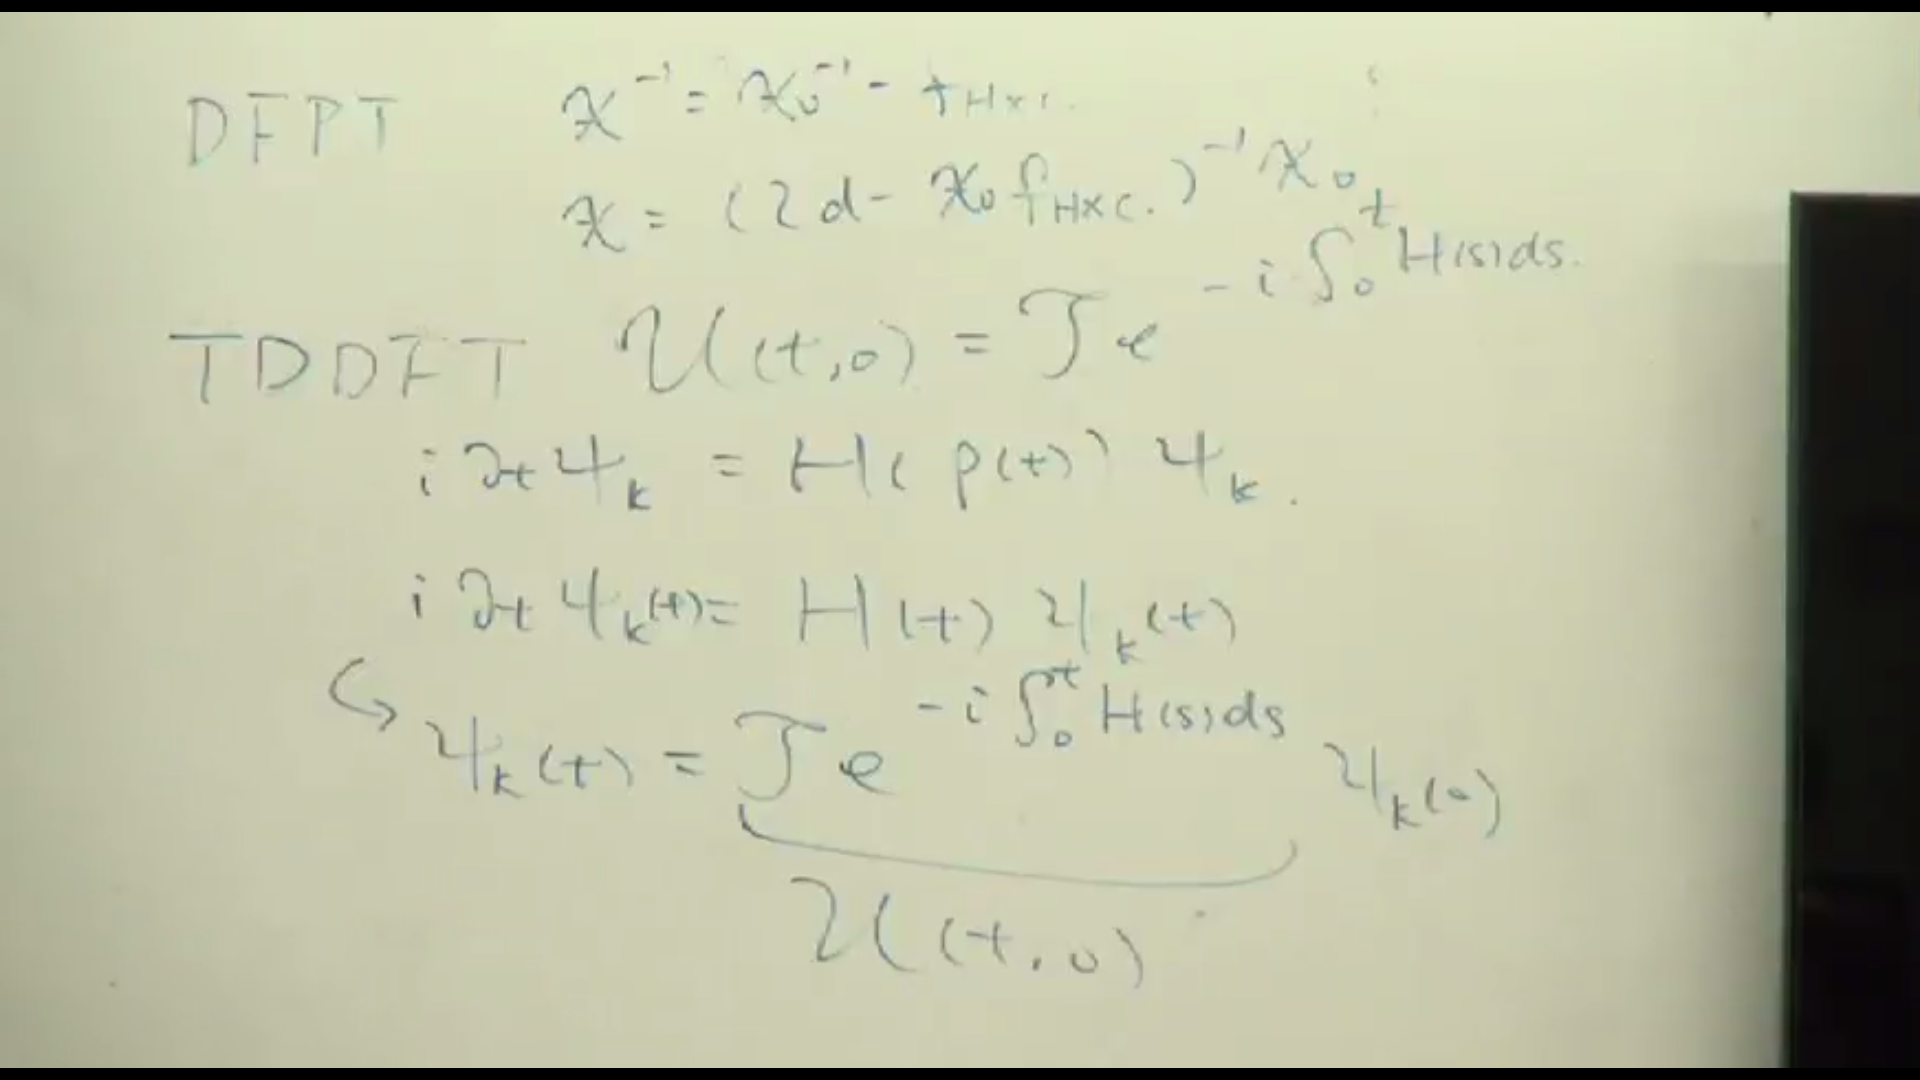 DFPT χ⁻¹ = χ₀⁻¹ - f_Hxc.
χ = (Id - χ₀ f_Hxc.)⁻¹ χ₀
TDDFT U(t,0) = T e^{-i ∫₀ᵗ H(s)ds.}
i ∂t ψ_k = H(ρ(t)) ψ_k.
i ∂t ψ_k(t) = H(t) ψ_k(t)
↪ ψ_k(t) = T e^{-i ∫₀ᵗ H(s)ds} ψ_k(0)
U(t,0)